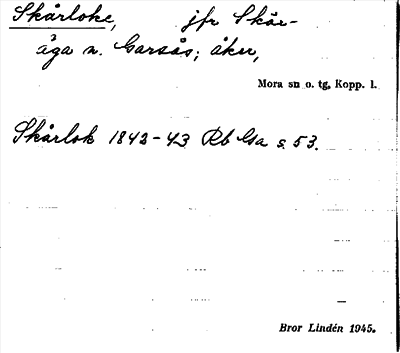 Skårloke, jfr Skår-
åga n. Garsås; åker,
Mora sn o. tg, Kopp. l.
Skårlok 1842-43 Rb Gsa s. 53.
Bror Lindén 1945.